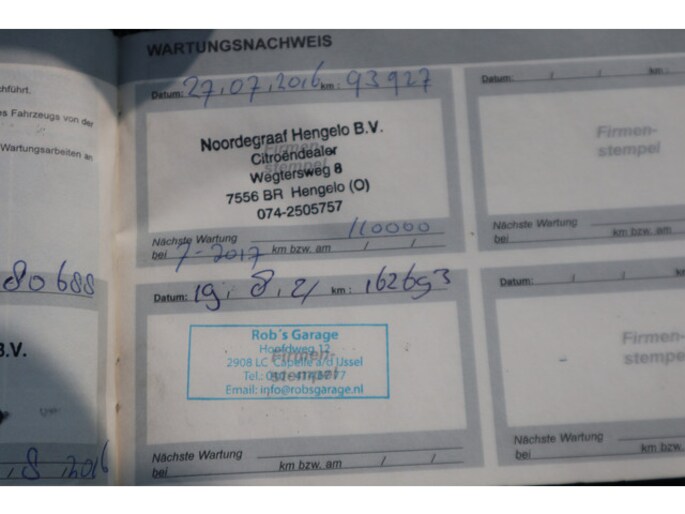 WARTUNGSNACHWEIS
chführt.
s Fahrzeugs von der
Wartungsarbeiten an
80688
B.V.
8 2016
Datum: 27.07.2016 km: 93927
Noordegraaf Hengelo B.V.
Citroëndealer
Wegtersweg 8
7556 BR Hengelo (O)
074-2505757
Firmen-
stempel
Nächste Wartung 110000
bei 7-2017 km bzw. am / /
Datum: 19.8.21 km: 162693
Rob's Garage
Hoofdweg 12
2908 LC Capelle a/d IJssel
Tel.:
Email: info@robsgarage.nl
Firmen-
stempel
Nächste Wartung
bei km bzw. am / /
Datum: / / km:
Firmen-
stempel
Nächste Wartung
bei km bzw. am / /
Datum: / /
Firmen-
stempel
Nächste Wartung
bei km bzw. am / /